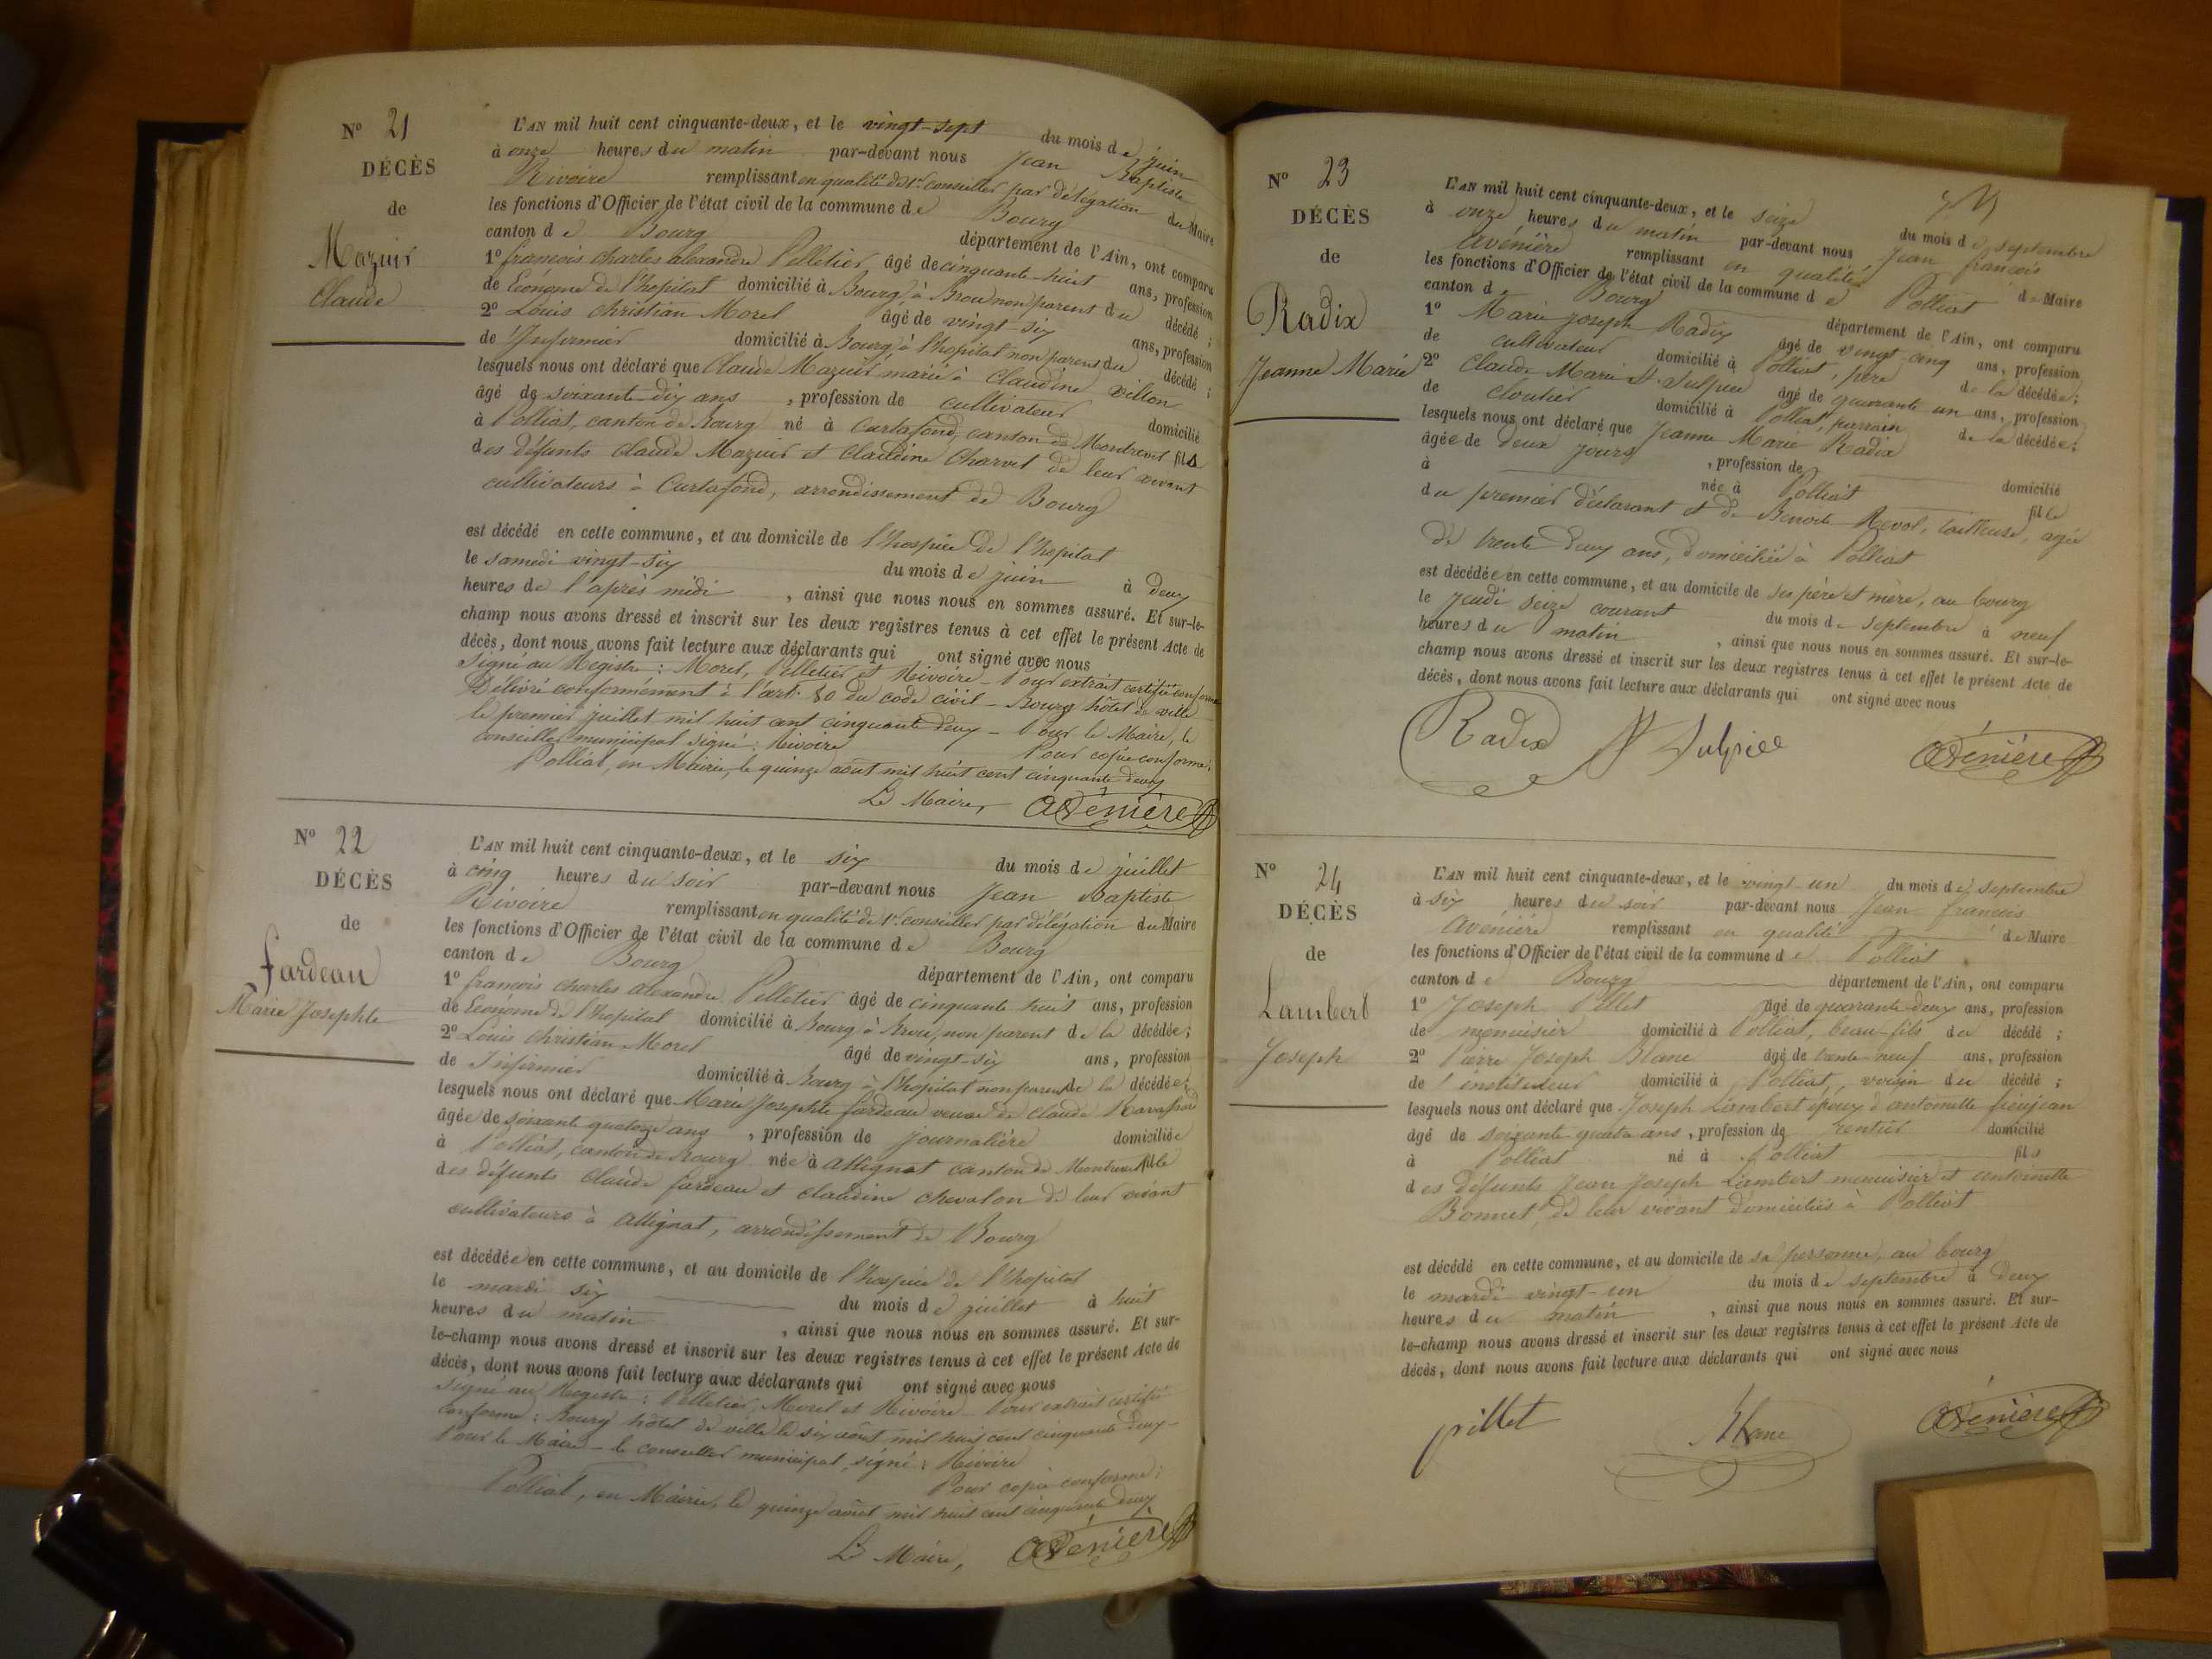 N° 21
DÉCÈS
de
Mazuir
Claude
L'AN mil huit cent cinquante-deux, et le vingt-sept du mois de juin
à onze heures du matin par-devant nous Jean Baptiste
Rivoire remplissant en qualité de 1er conseiller par délégation du Maire
les fonctions d'Officier de l'état civil de la commune de Bourg
canton de Bourg département de l'Ain, ont comparu
1° françois charles alexandre Pelletier âgé de cinquante-huit ans, profession
de Econome de l'hopital domicilié à Bourg, à Brou non parent du décédé ;
2° Louis Christian Morel âgé de vingt-six ans, profession
de Infirmier domicilié à Bourg à l'hopital non parent du décédé ;
lesquels nous ont déclaré que Claude Mazuir marié à Claudine
âgé de soixante-dix ans , profession de cultivateur domicilié
à Polliat, canton de Bourg né à Curtafond, canton de Montrevel fils
des défunts Claude Mazuir et Claudine Charvet de leur vivant
cultivateurs à Curtafond, arrondissement de Bourg
est décédé en cette commune, et au domicile de l'hospice de l'hopital
le samedi vingt-six du mois de juin à deux
heures de l'après midi , ainsi que nous nous en sommes assuré. Et sur-le-
champ nous avons dressé et inscrit sur les deux registres tenus à cet effet le présent Acte de
décès, dont nous avons fait lecture aux déclarants qui ont signé avec nous
Signé au Registre : Morel, Pelletier et Rivoire – Pour extrait certifié conforme
Délivré conformément à l'art. 80 du code civil – Bourg hôtel de ville
le premier juillet mil huit cent cinquante deux – Pour le Maire, le
conseiller municipal signé : Rivoire Pour copie conforme :
Polliat, en Mairie, le quinze aout mil huit cent cinquante-deux
Le Maire, Avénière
N° 22
DÉCÈS
de
fardeau
Marie Josephte
L'AN mil huit cent cinquante-deux, et le six du mois de juillet
à cinq heures du soir par-devant nous Jean Baptiste
Rivoire remplissant en qualité de 1er conseiller par délégation du Maire
les fonctions d'Officier de l'état civil de la commune de Bourg
canton de Bourg département de l'Ain, ont comparu
1° françois charles alexandre Pelletier âgé de cinquante huit ans, profession
de Econome de l'hopital domicilié à Bourg à Brou, non parent de la décédée ;
2° Louis Christian Morel âgé de vingt-six ans, profession
de Infirmier domicilié à Bourg à l'hopital non parent de la décédée ;
lesquels nous ont déclaré que Marie Josephte fardeau veuve de Claude
âgée de soixante quatorze ans , profession de journalière domiciliée
à Polliat, canton de Bourg née à Attignat canton de Montrevel fille
des défunts Claude fardeau et Claudine Chevalon de leur vivant
cultivateurs à Attignat, arrondissement de Bourg
est décédée en cette commune, et au domicile de l'hospice de l'hopital
le mardi six du mois de juillet à huit
heures du matin , ainsi que nous nous en sommes assuré. Et sur-
le-champ nous avons dressé et inscrit sur les deux registres tenus à cet effet le présent Acte de
décès, dont nous avons fait lecture aux déclarants qui ont signé avec nous
Signé au Registre : Pelletier, Morel et Rivoire – Pour extrait certifié
conforme : Bourg hôtel de ville le six aout mil huit cent cinquante deux –
Pour le Maire – le conseiller municipal, signé : Rivoire
Pour copie conforme :
Polliat, en Mairie, le quinze aout mil huit cent cinquante deux
Le Maire, Avénière
N° 23
DÉCÈS
de
Radix
Jeanne Marie
L'AN mil huit cent cinquante-deux, et le seize du mois de septembre
à onze heures du matin par-devant nous Jean françois
Avénière remplissant en qualité de Maire
les fonctions d'Officier de l'état civil de la commune de Polliat
canton de Bourg département de l'Ain, ont comparu
1° Marie Joseph Radix âgé de vingt-cinq ans, profession
de cultivateur domicilié à Polliat, père de la décédée ;
2° Claude Marie St Sulpice âgé de quarante un ans, profession
de cloutier domicilié à Polliat, parrain de la décédée ;
lesquels nous ont déclaré que Jeanne Marie Radix
âgée de deux jours , profession de
à domicilié
née à Polliat fille
du premier déclarant et de Benoite Revol, tailleuse, agée
de trente deux ans, domiciliée à Polliat
est décédée en cette commune, et au domicile de ses père et mère, au bourg
le jeudi seize courant du mois de septembre à neuf
heures du matin , ainsi que nous nous en sommes assuré. Et sur-le-
champ nous avons dressé et inscrit sur les deux registres tenus à cet effet le présent Acte de
décès, dont nous avons fait lecture aux déclarants qui ont signé avec nous
Radix St Sulpice Avénière
N° 24
DÉCÈS
de
Lambert
Joseph
L'AN mil huit cent cinquante-deux, et le vingt-un du mois de septembre
à six heures du soir par-devant nous Jean françois
Avénière remplissant en qualité de Maire
les fonctions d'Officier de l'état civil de la commune de Polliat
canton de Bourg département de l'Ain, ont comparu
1° Joseph Pillet âgé de quarante-deux ans, profession
de menuisier domicilié à Polliat, beau-fils du décédé ;
2° Pierre Joseph Blanc âgé de trente-neuf ans, profession
de instituteur domicilié à Polliat, voisin du décédé ;
lesquels nous ont déclaré que Joseph Lambert époux d'antoinette
âgé de soixante quatre ans , profession de rentier domicilié
à Polliat né à Polliat fils
des défunts Jean Joseph Lambert menuisier et antoinette
Bonnet, de leur vivant domiciliés à Polliat
est décédé en cette commune, et au domicile de sa personne, au bourg
le mardi vingt-un du mois de septembre à deux
heures du matin , ainsi que nous nous en sommes assuré. Et sur-
le-champ nous avons dressé et inscrit sur les deux registres tenus à cet effet le présent Acte de
décès, dont nous avons fait lecture aux déclarants qui ont signé avec nous
pillet Blanc Avénière